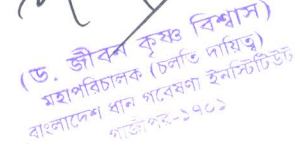 (ড. জীবন কৃষ্ণ বিশ্বাস)
মহাপরিচালক (চলতি দায়িত্ব)
বাংলাদেশ ধান গবেষণা ইনস্টিটিউট
গাজীপুর-১৭০১